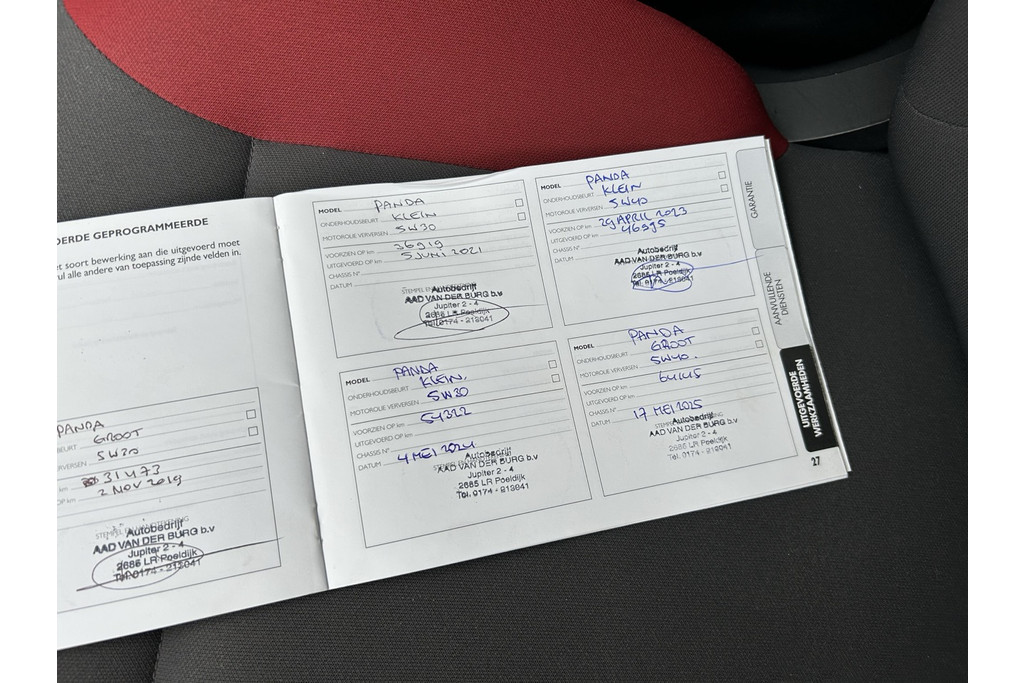 DERDE GEPROGRAMMEERDE
et soort bewerking aan die uitgevoerd moet
ul alle andere van toepassing zijnde velden in.
PANDA
BEURT GROOT
VERVERSEN 5W30
km 31473
OP km 2 NOV 2019
Autobedrijf
AAD VAN DER BURG b.v
Jupiter 2 - 4
2685 LR Poeldijk
Tel. 0174 - 213041
MODEL PANDA
ONDERHOUDSBEURT KLEIN
MOTOROLIE VERVERSEN 5W30
VOORZIEN OP km 36919
UITGEVOERD OP km 5 JUNI 2021
CHASSIS N°
DATUM
Autobedrijf
AAD VAN DER BURG b.v
Jupiter 2 - 4
2685 LR Poeldijk
Tel. 0174 - 213041
MODEL PANDA
ONDERHOUDSBEURT KLEIN
MOTOROLIE VERVERSEN 5W40
VOORZIEN OP km 29 APRIL 2023
UITGEVOERD OP km 46995
CHASSIS N°
DATUM
Autobedrijf
AAD VAN DER BURG b.v
Jupiter 2 - 4
2685 LR Poeldijk
Tel. 0174 - 213041
MODEL PANDA
ONDERHOUDSBEURT KLEIN.
MOTOROLIE VERVERSEN 5W30
VOORZIEN OP km 54322
UITGEVOERD OP km
CHASSIS N°
DATUM 4 MEI 2024
Autobedrijf
AAD VAN DER BURG b.v
Jupiter 2 - 4
2685 LR Poeldijk
Tel. 0174 - 213041
MODEL PANDA
ONDERHOUDSBEURT GROOT
MOTOROLIE VERVERSEN 5W40.
VOORZIEN OP km 64145
UITGEVOERD OP km
CHASSIS N°
DATUM 17 MEI 2025
Autobedrijf
AAD VAN DER BURG b.v
Jupiter 2 - 4
2685 LR Poeldijk
Tel. 0174 - 213041
GARANTIE
AANVULLENDE
DIENSTEN
UITGEVOERDE
WERKZAAMHEDEN
27